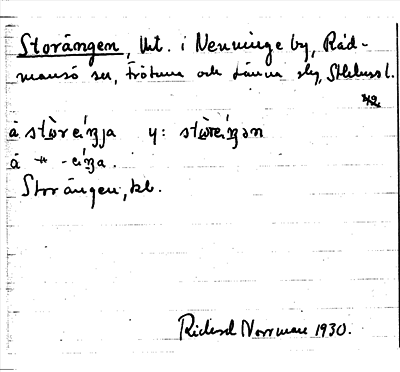 Storängen, Utt. i Nenninge by, Råd-
mansö sn, Frötuna och Länna slg, Sthlms l.
42
å stòreiŋja y: stòreiŋən
å " -eiŋa.
Storängen, kl.
Richard Norrman 1930.